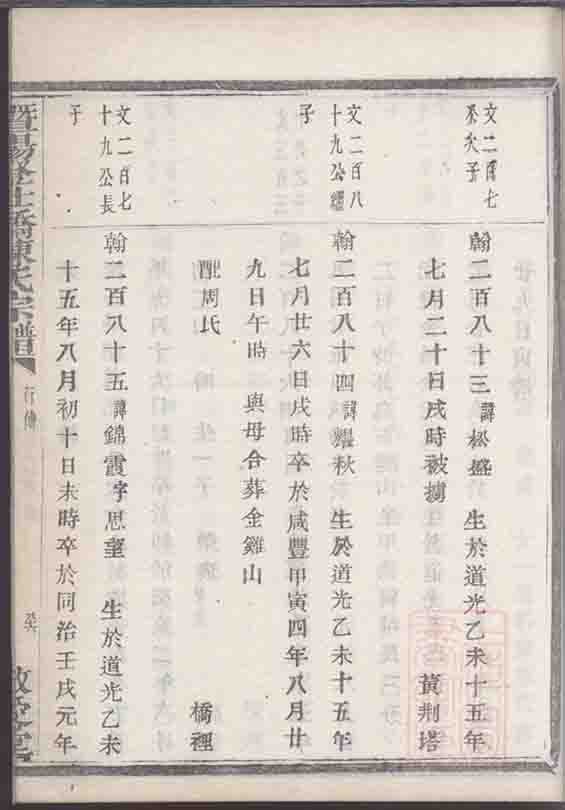 文二百七
癸次子
翰二百八十三諱松盛 生於道光乙未十五年
七月二十日戌時被擄 黃荆塔
文二百八
十九公繼
子
翰二百八十四諱耀秋 生於道光乙未十五年
七月廿六日戌時卒於咸豐甲寅四年八月廿
九日午時 與母合葬金雞山
配周氏 橋裡
文二百七
十九公長
子
翰二百八十五諱錦霞字思莑 生於道光乙未
十五年八月初十日未時卒於同治壬戌元年
行傳